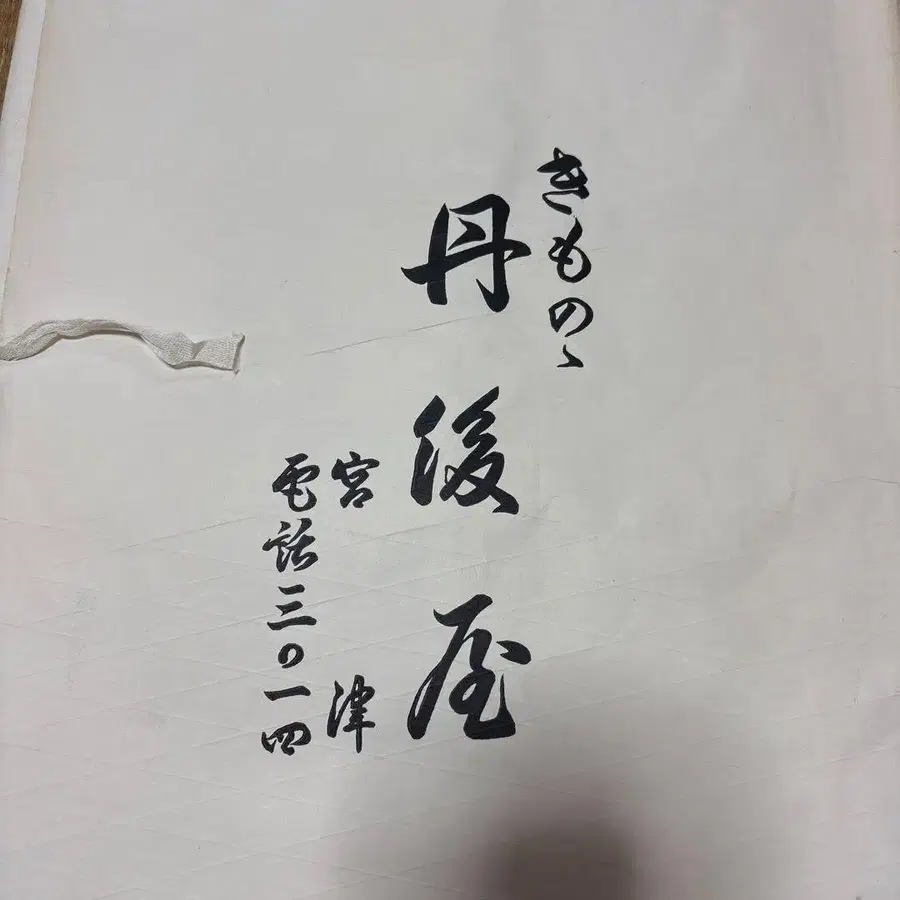 きものゝ
丹後屋
宮津
電話三〇一四